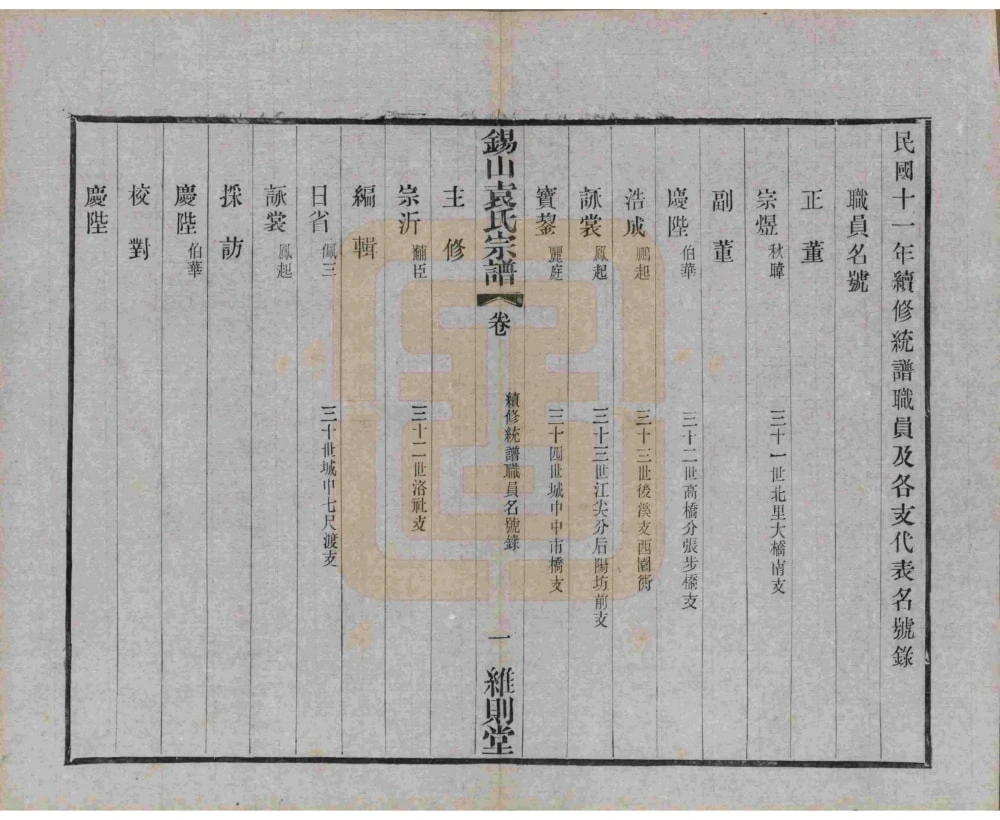 民國十一年續修統譜職員及各支代表名號錄
職員名號
正董
宗煜 秋暐 三十一世北里大橋南支
副董
慶陛 伯華 三十二世高橋分張步橋支
浩成 鵬起 三十三世後溪支西園衖
詠裳 鳳起 三十三世江尖分后陽坊前支
寶鋆 麗庭 三十四世城中中市橋支
錫山袁氏宗譜 卷 續修統譜職員名號錄 一 維則堂
主修
宗沂 黼臣 三十二世洛社支
編輯
日省 佩三 三十世城中七尺渡支
詠裳 鳳起
採訪
慶陛 伯華
校對
慶陛